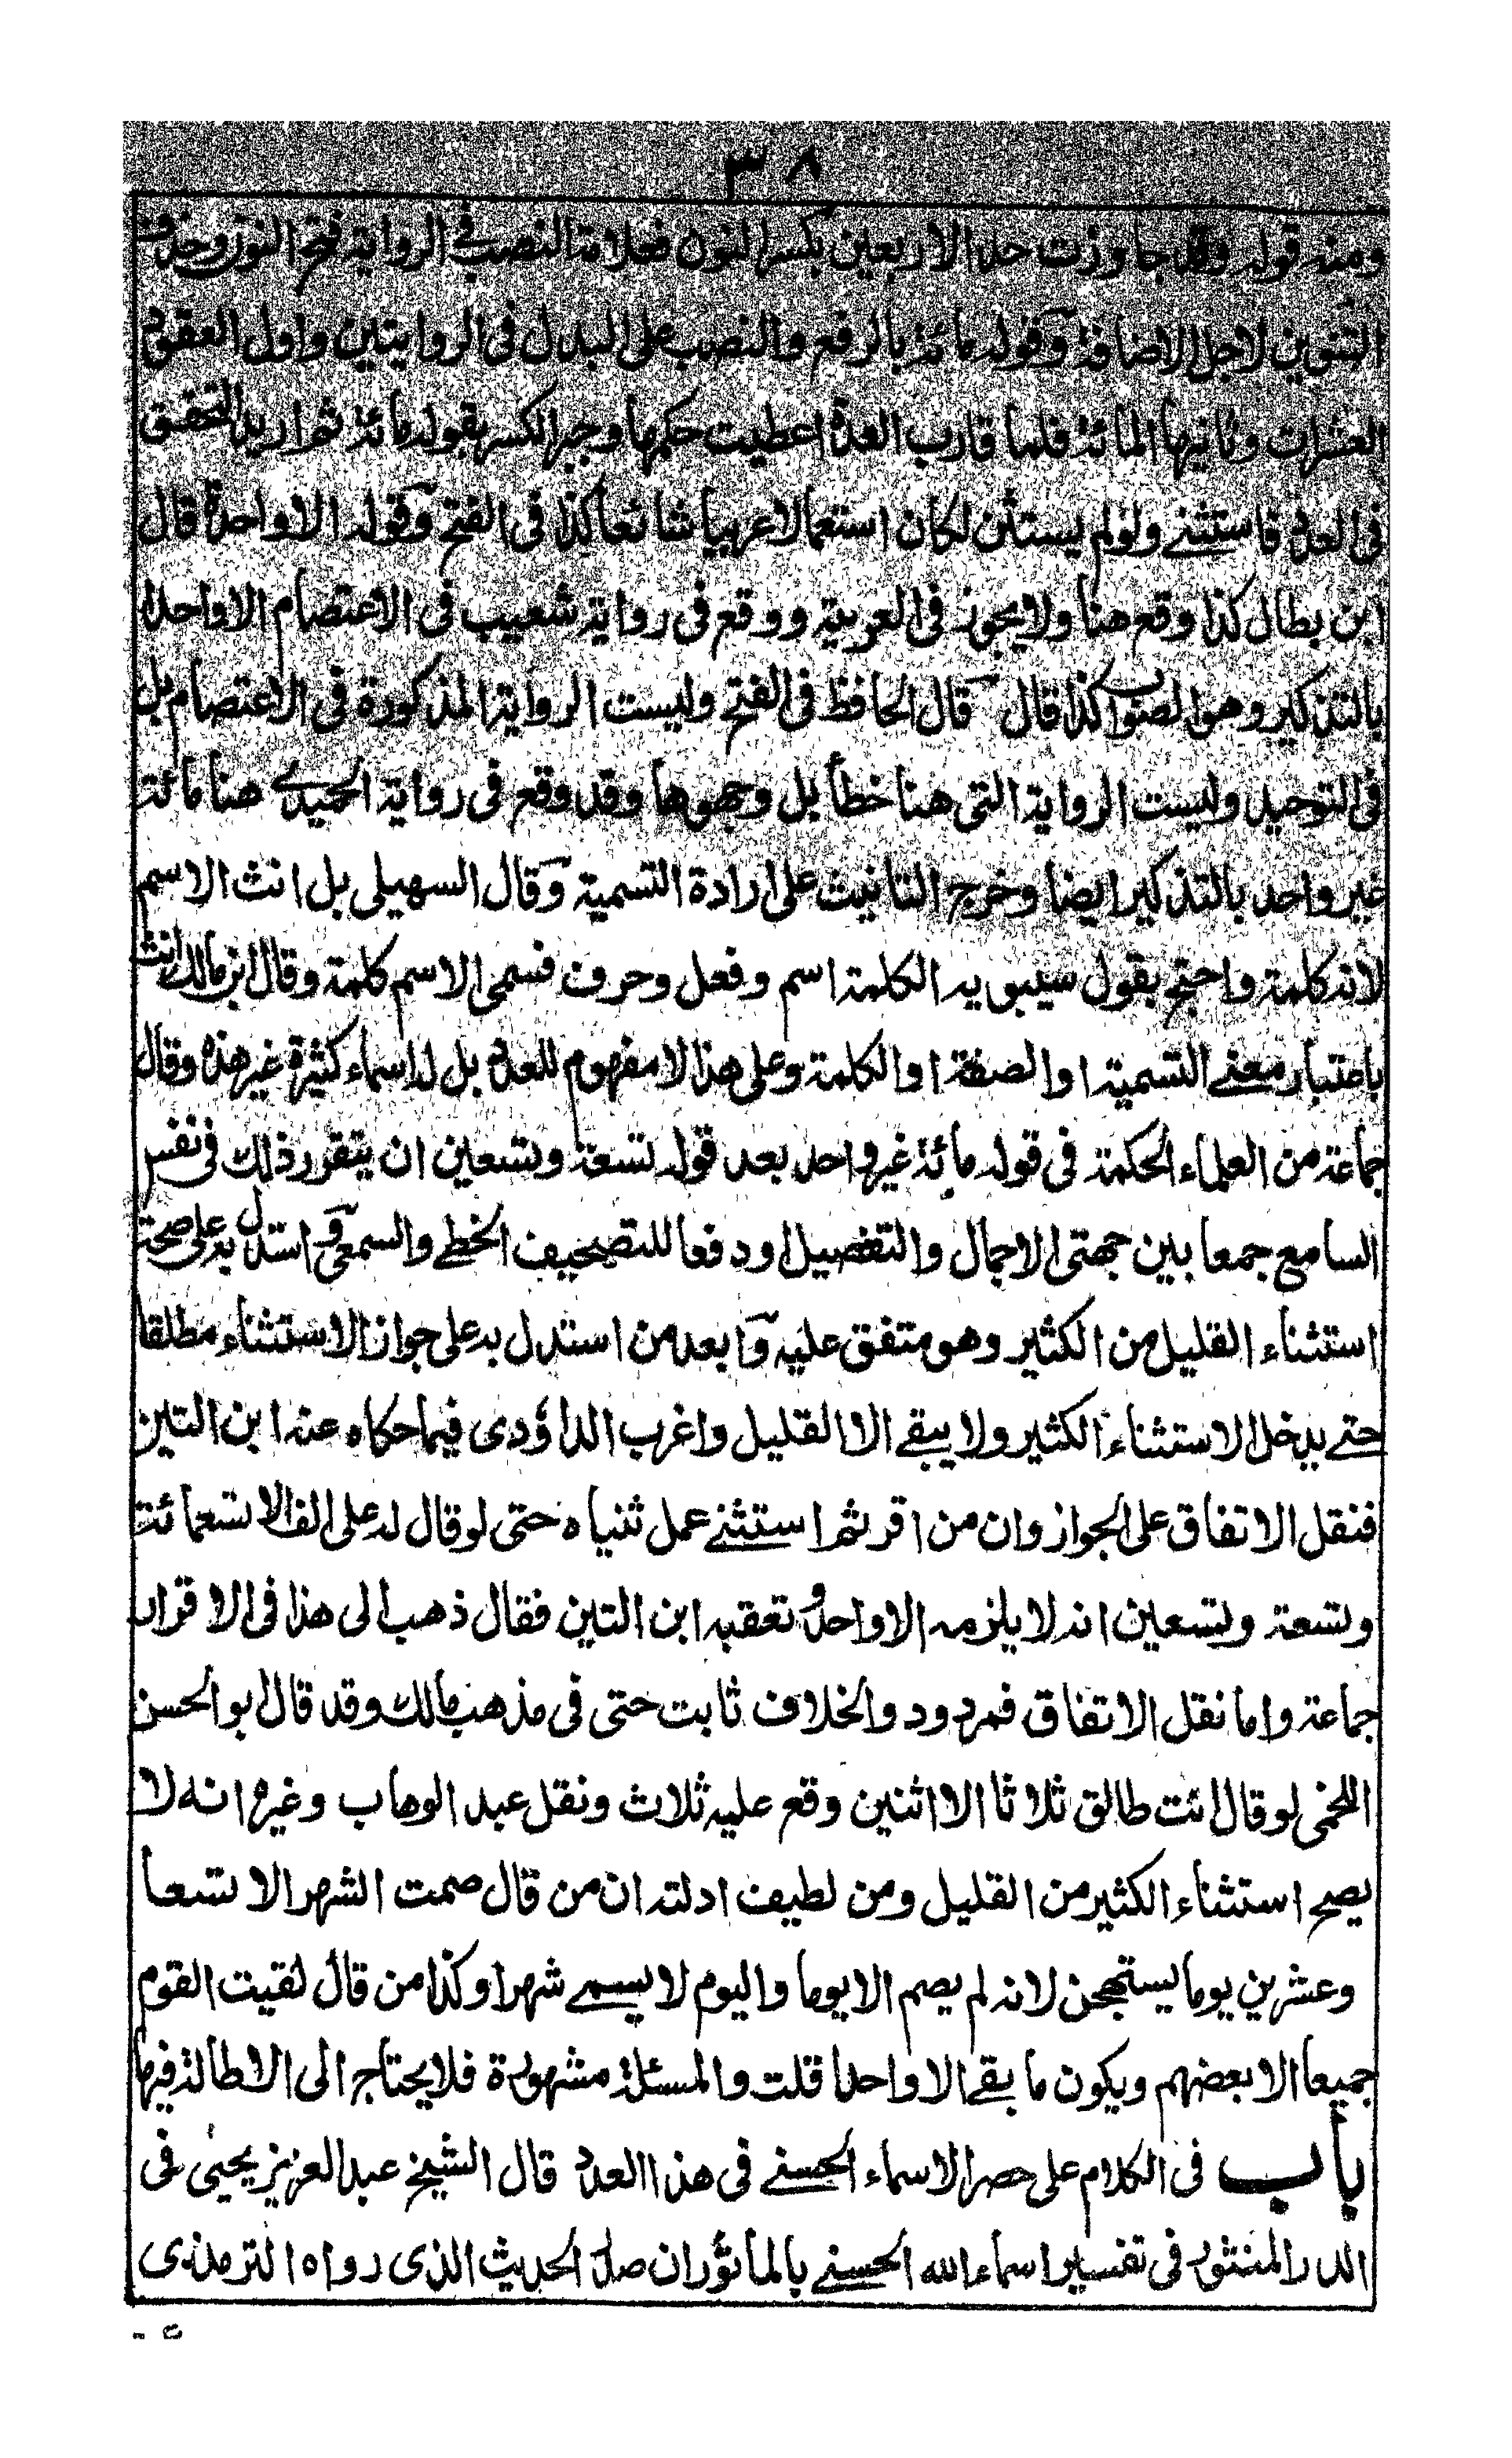 ٣٨
ومنه قوله وقد جاوزت حد الاربعين بكسر النون فعلامة النصب فى الرواية فتح النون وحذف
التنوين لاجل الاضافة وقوله مائة بالرفع والنصب على البدل فى الروايتين واول العقود
العشرات وثانيها المائة فلما قارب العدة اعطيت حكمها وجبر الكسر بقوله مائة ثم اريد التحقق
فى العدد فاستثنے ولو لم يستثن لكان استعمالا عربيا شائعا كذا فى الفتح وقوله الا واحدة قال
ابن بطال كذا وقع هنا ولا يجوز فى العربية ووقع فى رواية شعيب فى الاعتصام الا واحدا
بالتذكير وهو الصواب كذا قال قال الحافظ فى الفتح وليست الرواية المذكورة فى الاعتصام بل
فى التوحيد وليست الرواية التى هنا خطأ بل وجهوها وقد وقع فى رواية الحميدے هنا مائة
غير واحد بالتذكير ايضا وخرج التانيث على ارادة التسمية وقال السهيلى بل انث الاسم
لانه كلمة واحتج بقول سيبويه الكلمة اسم وفعل وحرف فسمى الاسم كلمة وقال ابن مالك انث
باعتبار معنے التسمية او الصفة او الكلمة وعلى هذا لا مفهوم للعدد بل له اسماء كثيرة غير هذه وقال
جماعة من العلماء الحكمة فى قوله مائة غير واحد بعد قوله تسعة وتسعين ان يتقرر ذلك فى نفس
السامع جمعا بين جهتى الاجمال والتفصيل او دفعا للتصحيف الخطے والسمعى واستدل به على صحة
استثناء القليل من الكثير وهو متفق عليه وابعد من استدل به على جواز الاستثناء مطلقا
حتے يدخل الاستثناء الكثير ولا يبقے الا القليل واغرب الداؤدى فيما حكاه عنه ابن التين
فنقل الاتفاق على الجواز وان من اقر ثم استثنے عمل ثنياه حتى لو قال له على الف الا تسعمائة
وتسعة وتسعين انه لا يلزمه الا واحد وتعقبه ابن التين فقال ذهب الى هذا فى الاقرار
جماعة واما نقل الاتفاق فمردود والخلاف ثابت حتى فى مذهب مالك وقد قال ابو الحسن
اللخمى لو قال انت طالق ثلاثا الا اثنين وقع عليه ثلاث ونقل عبد الوهاب وغيره انه لا
يصح استثناء الكثير من القليل ومن لطيف ادلته ان من قال صمت الشهر الا تسعا
وعشرين يوما يستهجن لانه لم يصم الا يوما واليوم لا يسمے شهرا وكذا من قال لقيت القوم
جميعا الا بعضهم ويكون ما بقے الا واحدا قلت والمسئلة مشهورة فلا يحتاج الى الاطالة فيها
باب فى الكلام على حصر الاسماء الحسنے فى هذا العدد قال الشيخ عبد العزيز يحيى فى
الدر المنثور فى تفسير اسماء الله الحسنے بالمأثور ان صدر الحديث الذى رواه الترمذى